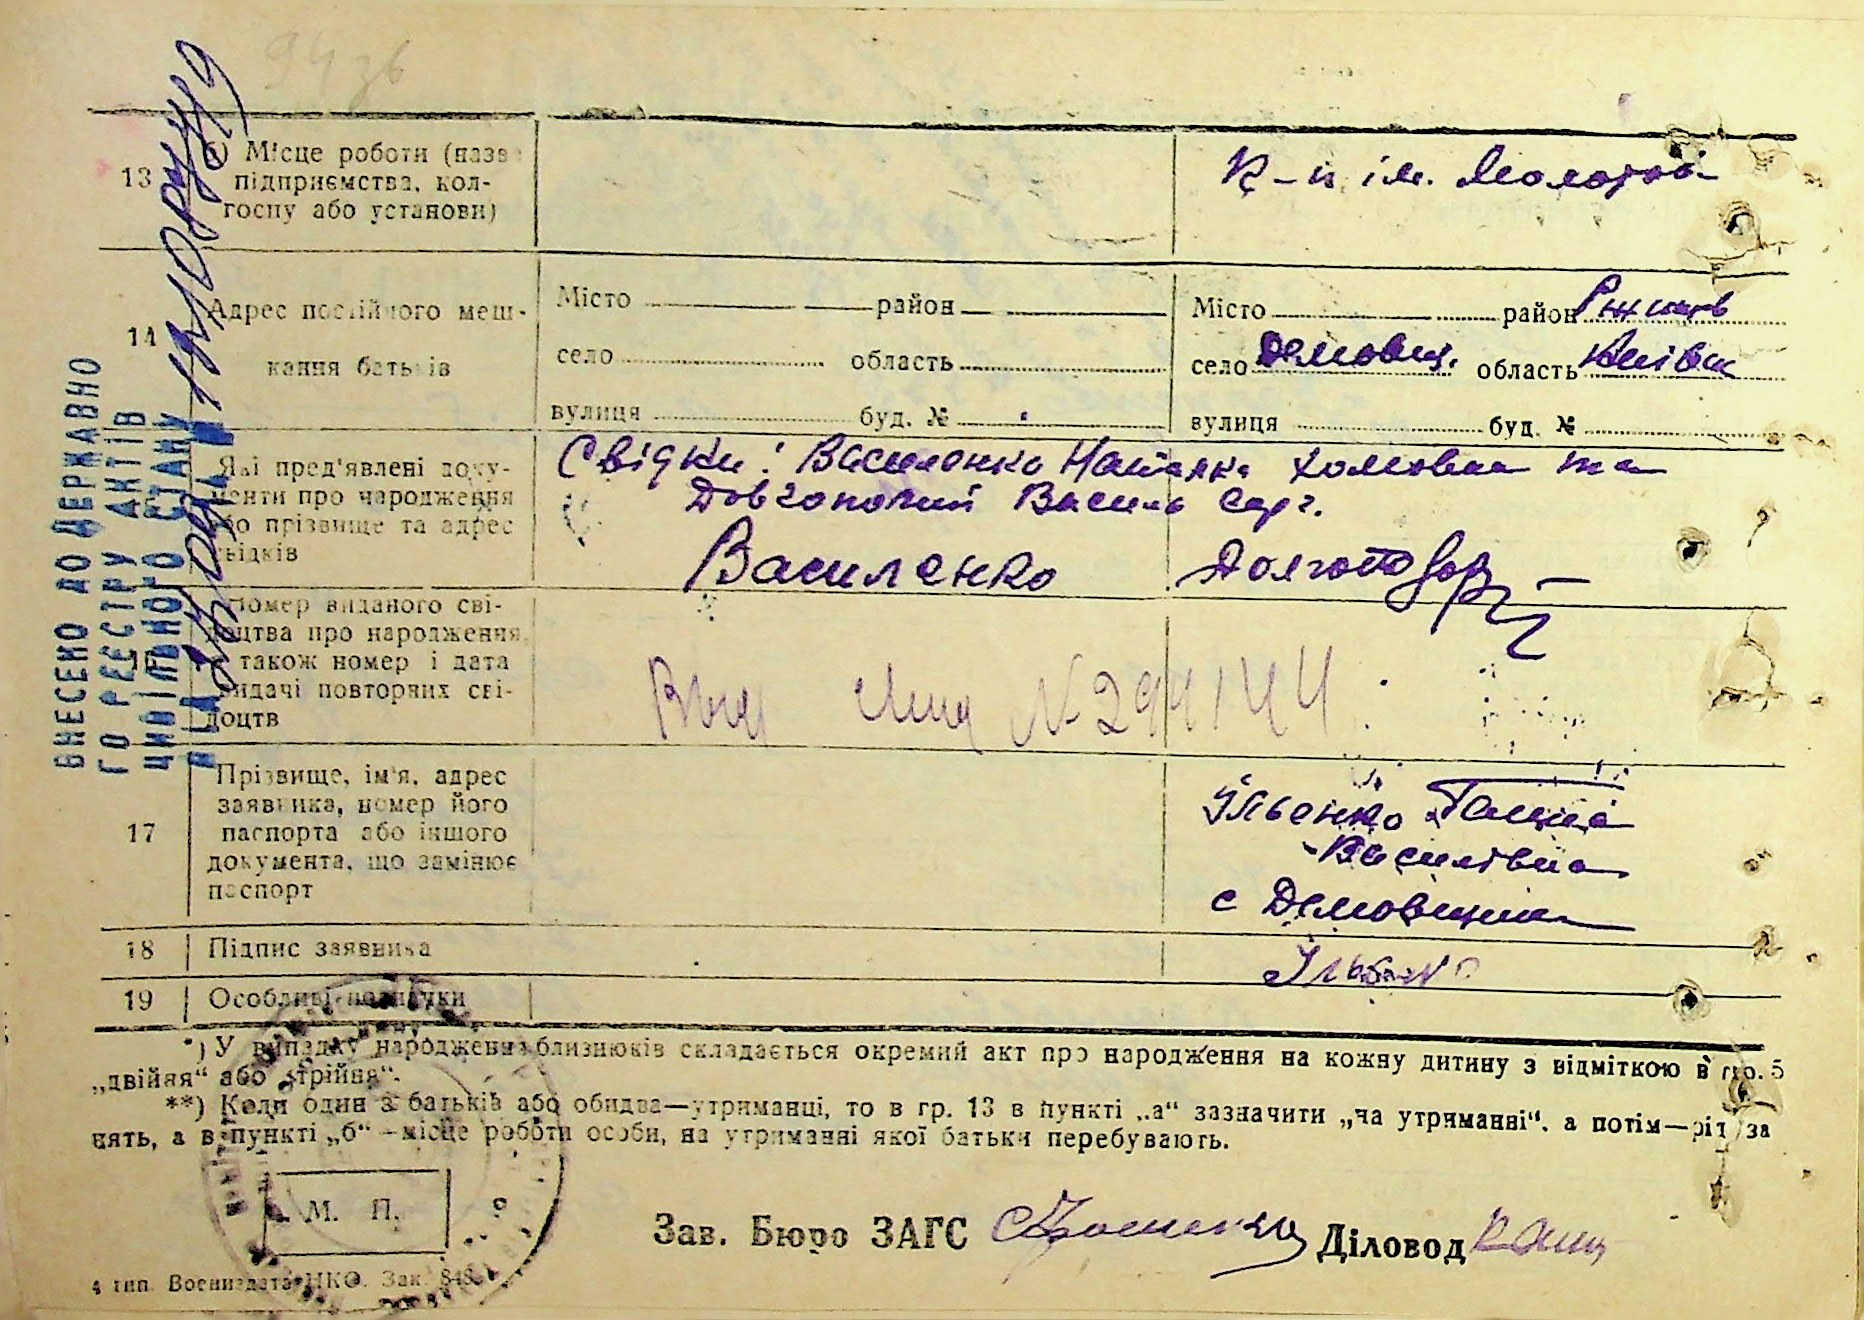 94 зв
13 б) Місце роботи (назва підприємства, колгоспу або установи)
К-п ім. Молотова
14 Адрес постійного мешкання батьків
Місто район
село область
вулиця буд. №
Місто район Ржищів
село Демовщ. область Київськ
вулиця буд. №
Які пред'явлені документи про народження або прізвище та адрес свідків
Свідки: Василенко Наталка Хомовна та
Довгополий Василь Серг.
Василенко
Номер виданого свідоцтва про народження, а також номер і дата видачі повторних свідоцтв
№ 294144
17 Прізвище, ім'я, адрес заявника, номер його паспорта або іншого документа, що замінює паспорт
Ільєнко Ганна
Василівна
с Демовщина
18 Підпис заявника
19 Особливі позначки
*) У випадку народження близнюків складається окремий акт про народження на кожну дитину з відміткою в гр. 5
„двійня“ або „трійня“.
**) Коли один з батьків або обидва—утриманці, то в гр. 13 в пункті „а“ зазначити „на утриманні“, а потім—рід за
нять, а в пункті „б“—місце роботи особи, на утриманні якої батьки перебувають.
М. П.
Зав. Бюро ЗАГС Діловод
4 тип. Воениздата НКО. Зак. 848
ВНЕСЕНО ДО ДЕРЖАВНО
ГО РЕЄСТРУ АКТІВ
ЦИВІЛЬНОГО СТАНУ